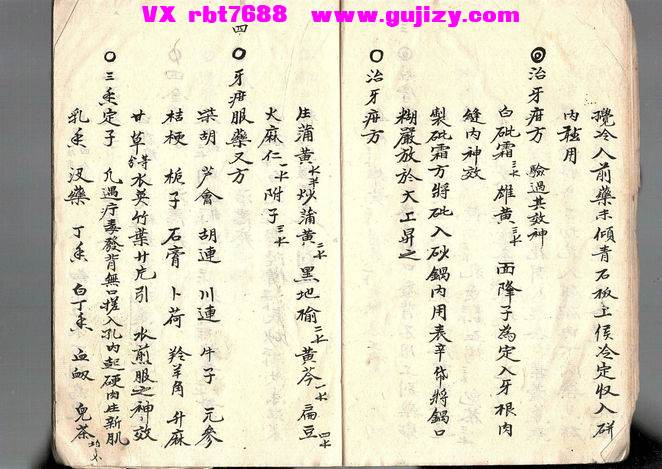 VX rbt7688 www.gujizy.com
攪冷入前藥末傾青石板上候冷定收入缾
內聽用
◎治牙疳方 驗過其效神
白砒霜 雄黃 面降子為定入牙根肉
縫內神效
製砒霜方將砒入砂鍋內用表辛紙將鍋口
糊嚴放於大上昇之
○治牙疳方
生蒲黃 炒蒲黃 黑地榆 黃芩 扁豆
火麻仁 附子
四
○牙疳服藥又方
柴胡 芦薈 胡連 川連 牛子 元參
桔梗 梔子 石膏 卜荷 羚羊角 升麻
甘草 水英竹葉廿片引 水煎服之神效
○三香定子 凡遇疔毒發背無口搓入孔內起硬肉生新肌
乳香 沒藥 丁香 白丁香 血蝎 兒茶